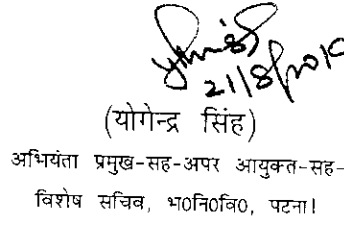 21/8/2010
(योगेन्द्र सिंह)
अभियंता प्रमुख-सह-अपर आयुक्त-सह-
विशेष सचिव, भ०नि०वि०, पटना।